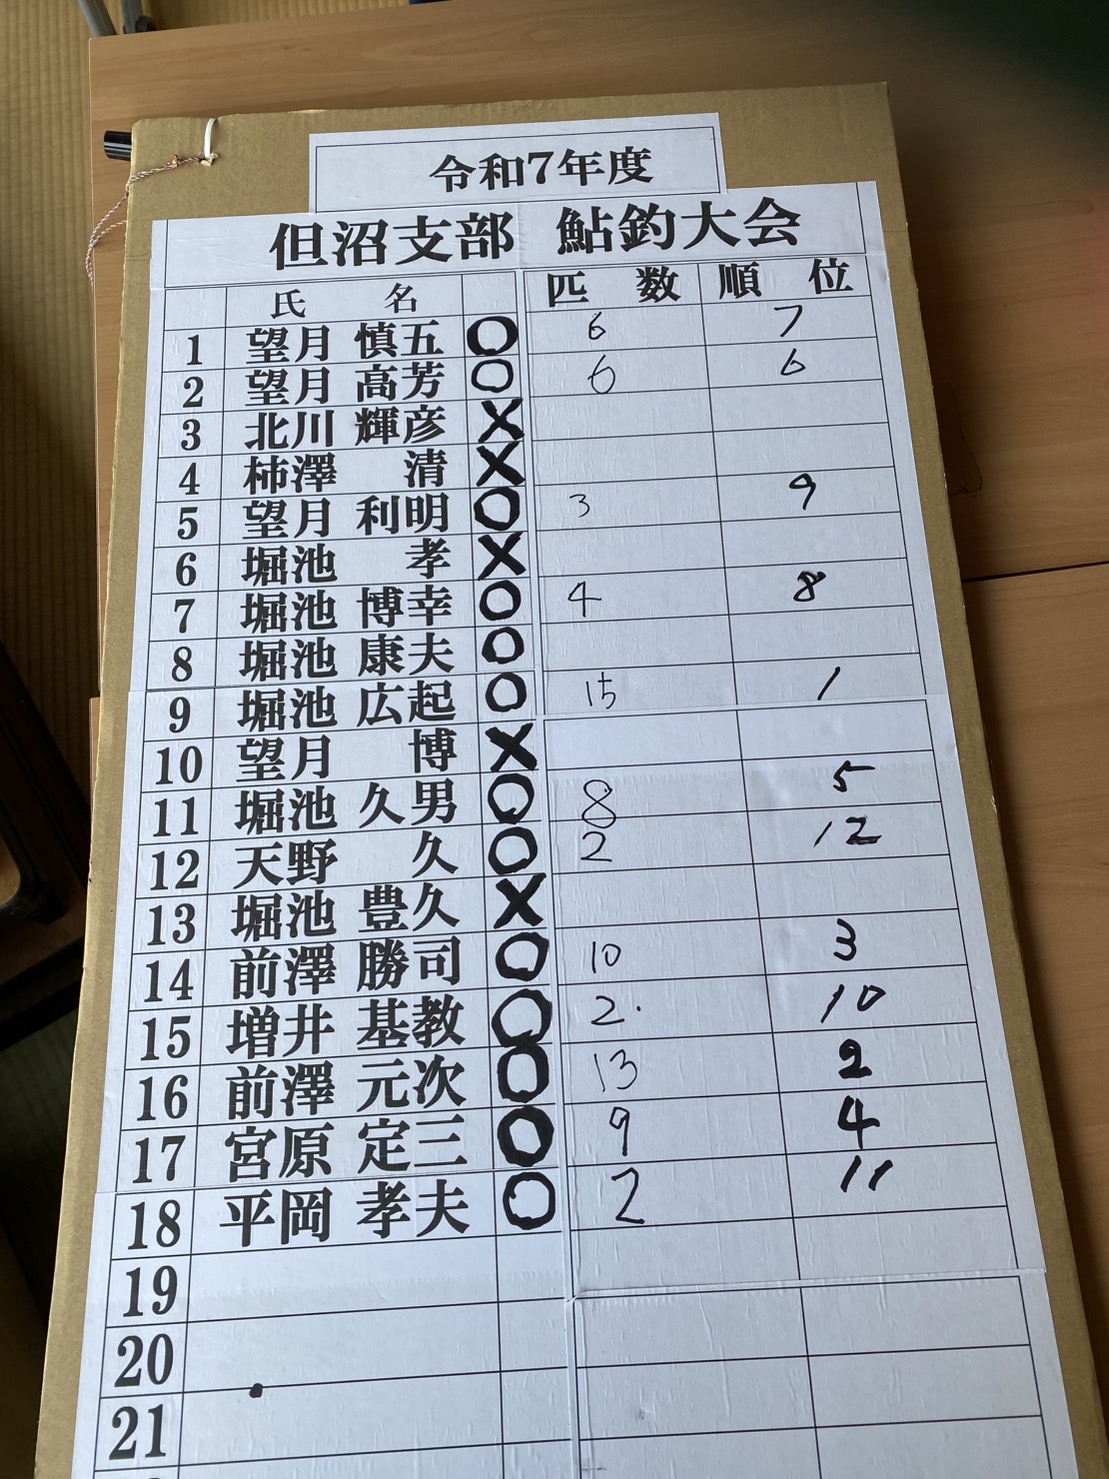 令和7年度
但沼支部 鮎釣大会
氏 名 匹 数 順 位
1 望月 慎五 ○ 6 7
2 望月 高芳 ○ 6 6
3 北川 輝彦 ×
4 柿澤 清 ×
5 望月 利明 ○ 3 9
6 堀池 孝 ×
7 堀池 博幸 ○ 4 8
8 堀池 康夫 ○
9 堀池 広起 ○ 15 1
10 望月 博 ×
11 堀池 久男 ○ 8 5
12 天野 久 ○ 2 12
13 堀池 豊久 ×
14 前澤 勝司 ○ 10 3
15 増井 基教 ○ 2. 10
16 前澤 元次 ○ 13 2
17 宮原 定三 ○ 9 4
18 平岡 孝夫 ○ 2 11
19
20
21